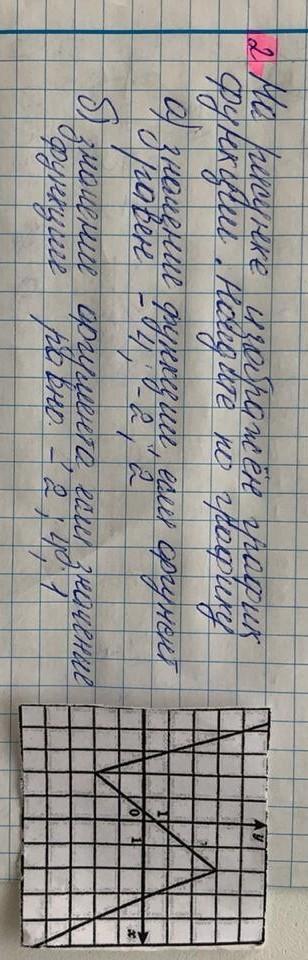 2. На рисунке изображён график
функции. Найдите по графику
а) значение функции, если аргумент
равен -4; -2; 2
б) значение аргумента если значение
функции равно -2; 4; 1
y
1
0
1
x